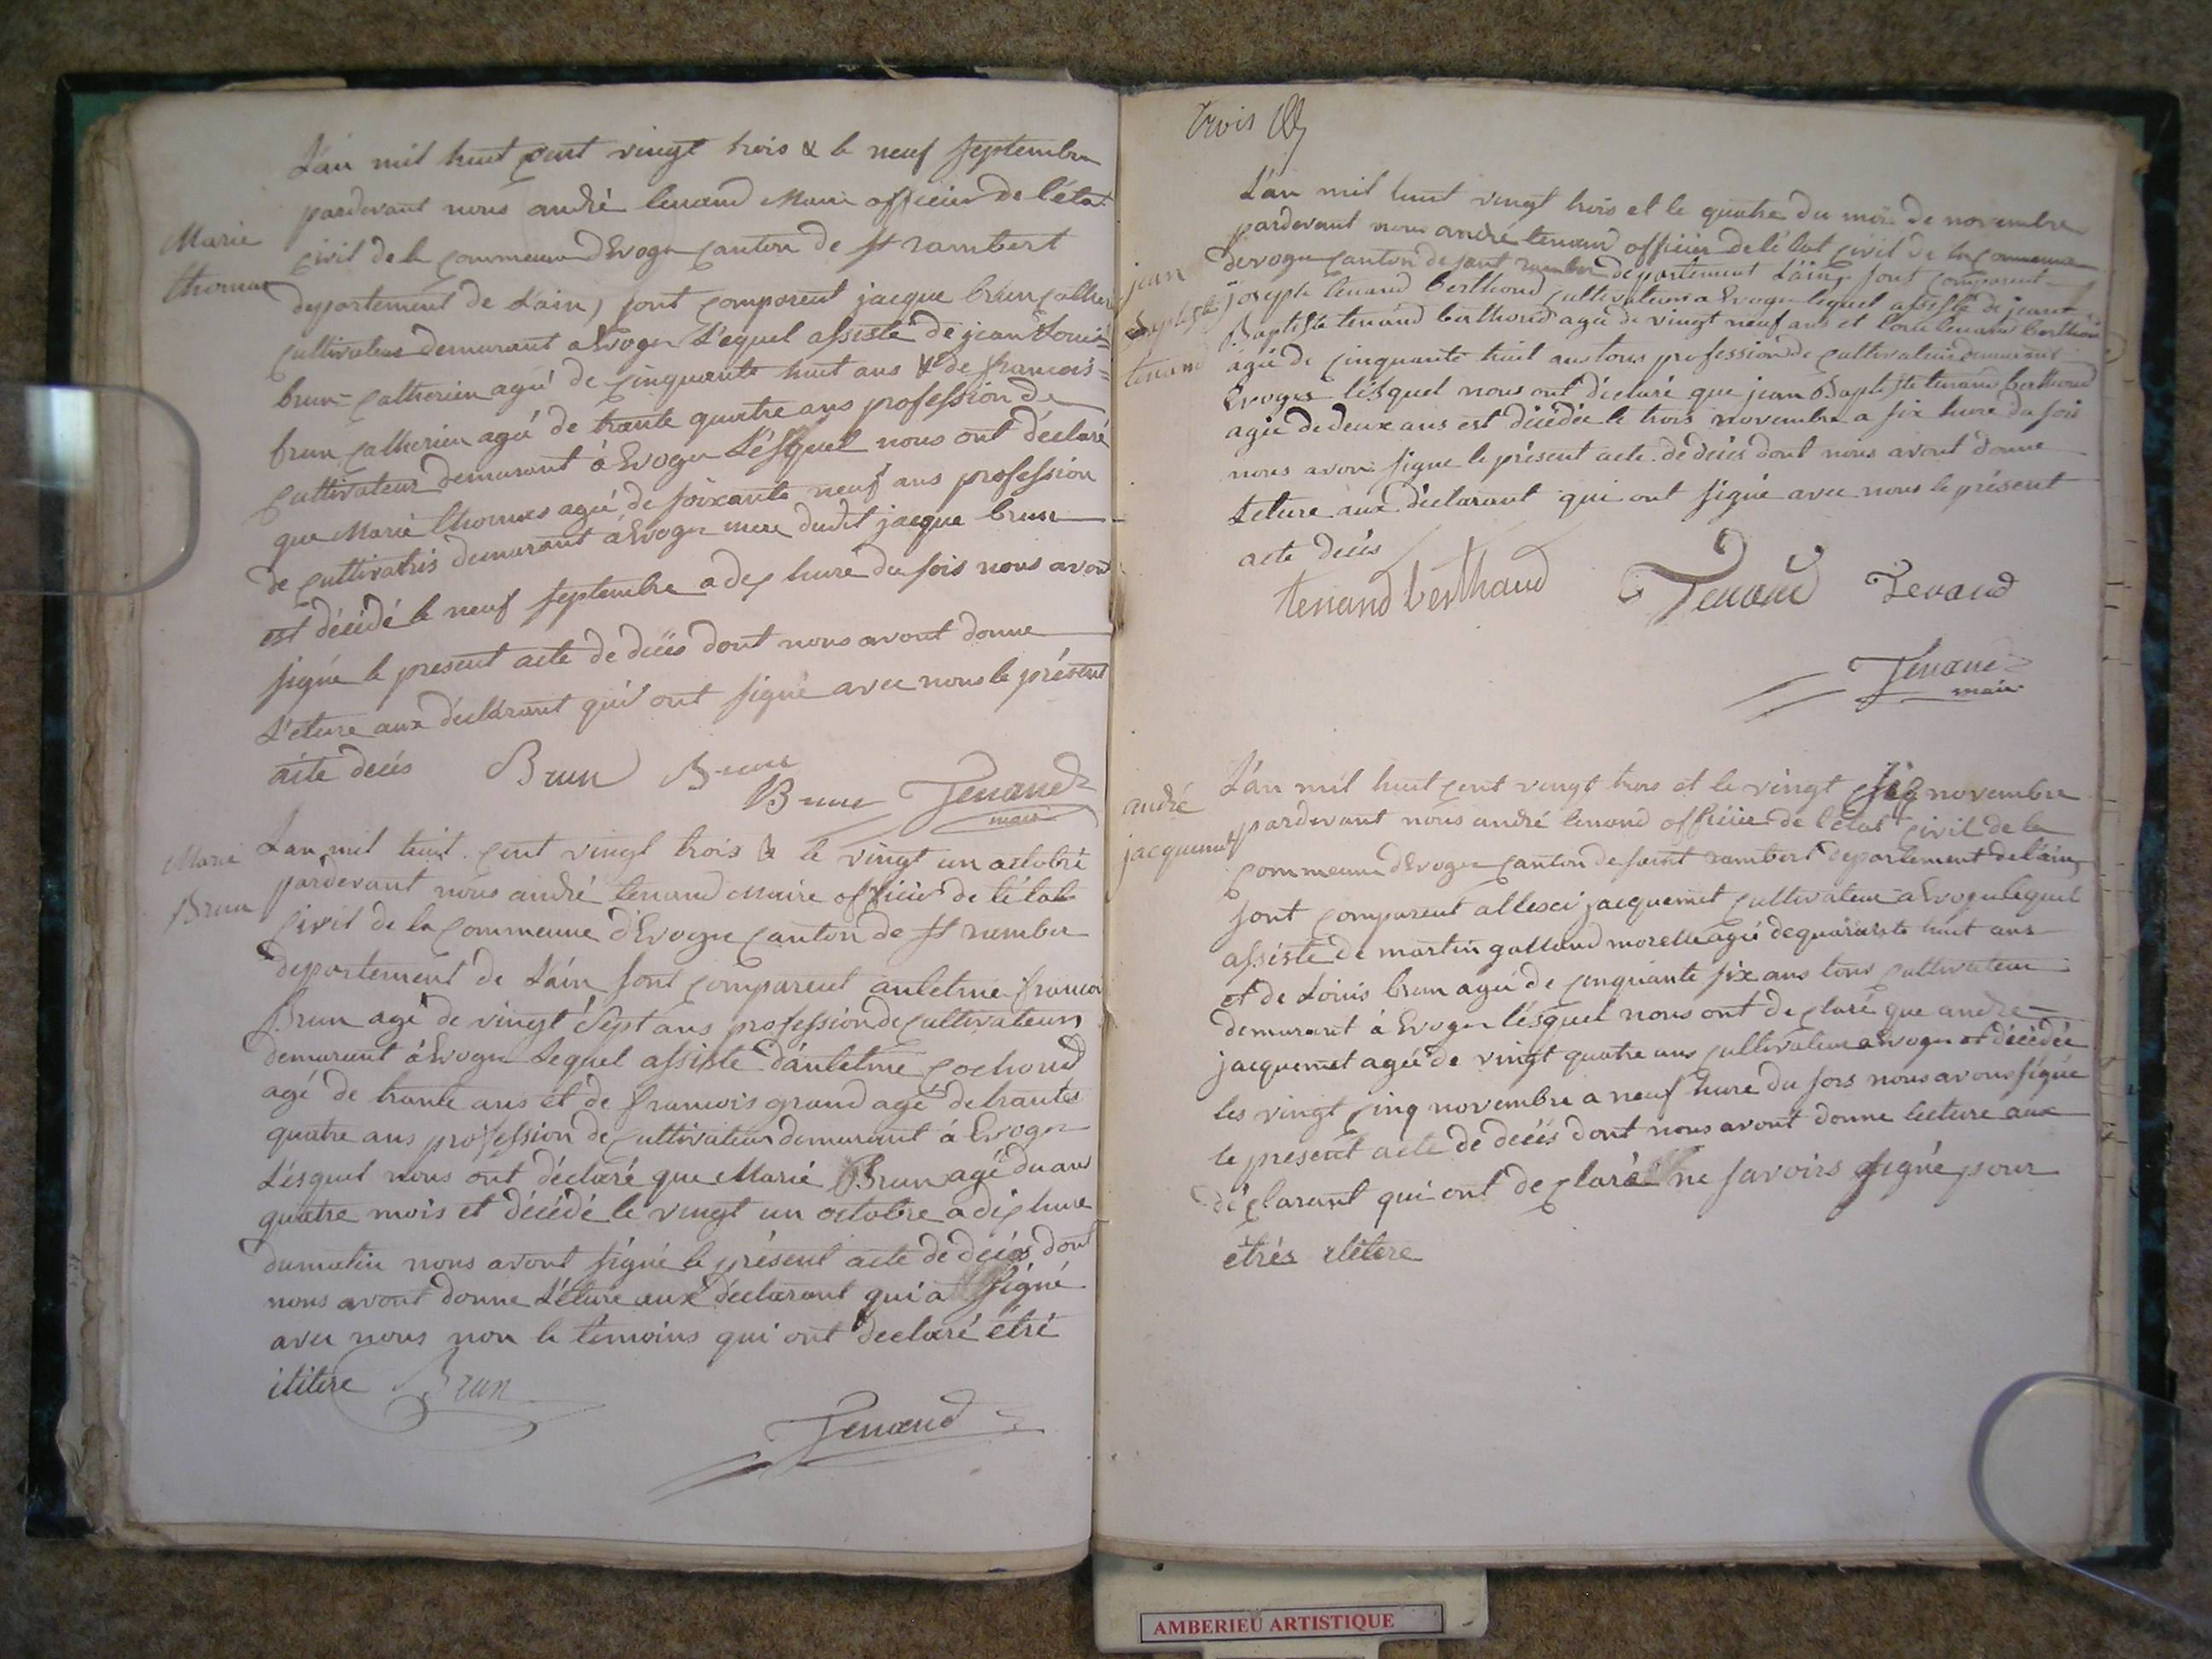 L'an mil huit cent vingt trois & le neuf septembre
pardevant nous andré tenand Maire officier de l'état
Marie
thomas
civil de la commune d'Evoge canton de st rambert
departement de L'ain, sont comparent jacque brun catherin
cultivateur demurant a Evoge L'equel assisté de jean Louis
brun catherin agé de cinquante huit ans & de francois
brun catherin agé de trante quatre ans profession de
cultivateur demurant à Evoge L'ésquel nous ont déclaré
que Marie thomas agé de soixante neuf ans profession
de cultivatris demurant à Evoge mere dudit jacque brun
est décédé le neuf septembre a dex hure du sois nous avont
signé le present acte de decés dont nous avont donne
L'eture aux déclarant qui ont signé avec nous le présent
acte decés Brun Brun
Brun Tenand
maire
Marie
Brun
L'an mil huit cent vingt trois & le vingt un octobre
pardevant nous andré tenand Maire officier de l'état
civil de la Commeune d'Evoge canton de st ramber
departement de L'ain sont comparent antelme francoi
Brun agé de vingt Sept ans profession de cultivateur
demurant à Evoge Lequel assisté d'antelme cochond
agé de trante ans et de francois grand agé de trante
quatre ans profession de cultivateur demurant à Evoge
L'ésquel nous ont déclaré que Marie Brun agé du ans
quatre mois et décédé le vingt un octobre a dix hure
du matin nous avont signé le présent acte de decés dont
nous avont donne L'éture aux declarant qui a signé
avec nous non le témoins qui ont declaré étré
ilitere Brun
Tenand
trois
L'an mil huit vingt trois et le quatre du mois de novembre
pardevant nous andré tenand officier de l'état civil de la commeune
jean
Baptiste
tenand
devoge canton de saint ramber departement L'ain, sont comparent
joseph tenand berthoud cultivateur a Evoge lequel assisté de jean
Baptiste tenand berthoud agé de vingt neuf ans et tenand berthoud
agé de cinquante huit ans tous profession de cultivateur demurant
Evoges l'ésquel nous ont déclaré que jean Baptiste tenand berthoud
agée de deux ans est décédée le trois novembre a six hure du sois
nous avon signe le présent acte de decés dont nous avont donne
L'eture aux déclarant qui ont signé avec nous le présent
acte decés
tenand berthaud Tenand Tenand
Tenand
maire
andré
jacquemet
L'an mil huit cent vingt trois et le vingt six novembre
pardevant nous andré tenand officier de l'état civil de la
commeune d'Evoge canton de saint rambert departement de l'ain,
sont comparent allexi jacquemet cultivateur a Evoge lequel
assisté de martin galland morelle agé de quarante huit ans
et de Loiuis brun agé de cinquante six ans tous cultivateur
demurant à Evoge l'ésquel nous ont declaré que andre
jacquemet agée de vingt quatre ans cultivateur a Evoge et décédée
les vingt cinq novembre a neuf hure du sois nous avons signé
le present acte de decés dont nous avont donne lecture aux
déclarant qui ont declaré ne savoirs signé pour
étrés ilitere
AMBERIEU ARTISTIQUE